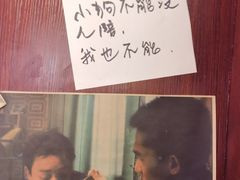 小狗不能没
人陪.
我也不能.